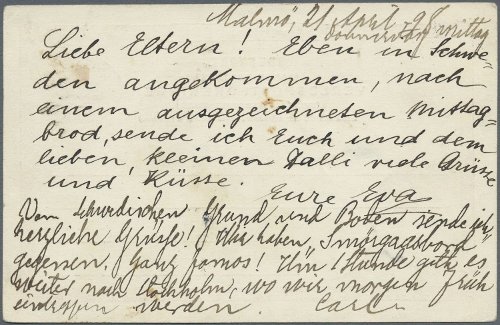 Malmö, 21 April 98
Donnerstag mittag
Liebe Eltern! Eben in Schwe-
den angekommen, nach
einem ausgezeichneten Mittag-
brod, sende ich Euch und dem
lieben, kleinen Talli viele Grüsse
und Küsse.
Eure Eva
Vom schwedischen Grund und Boden sende ich
herzliche Grüsse! Wir haben „Smörgasbord"
gegessen. Ganz famos! Um 1 Stunde geht es
weiter nach Stockholm, wo wir morgen früh
eintreffen werden.